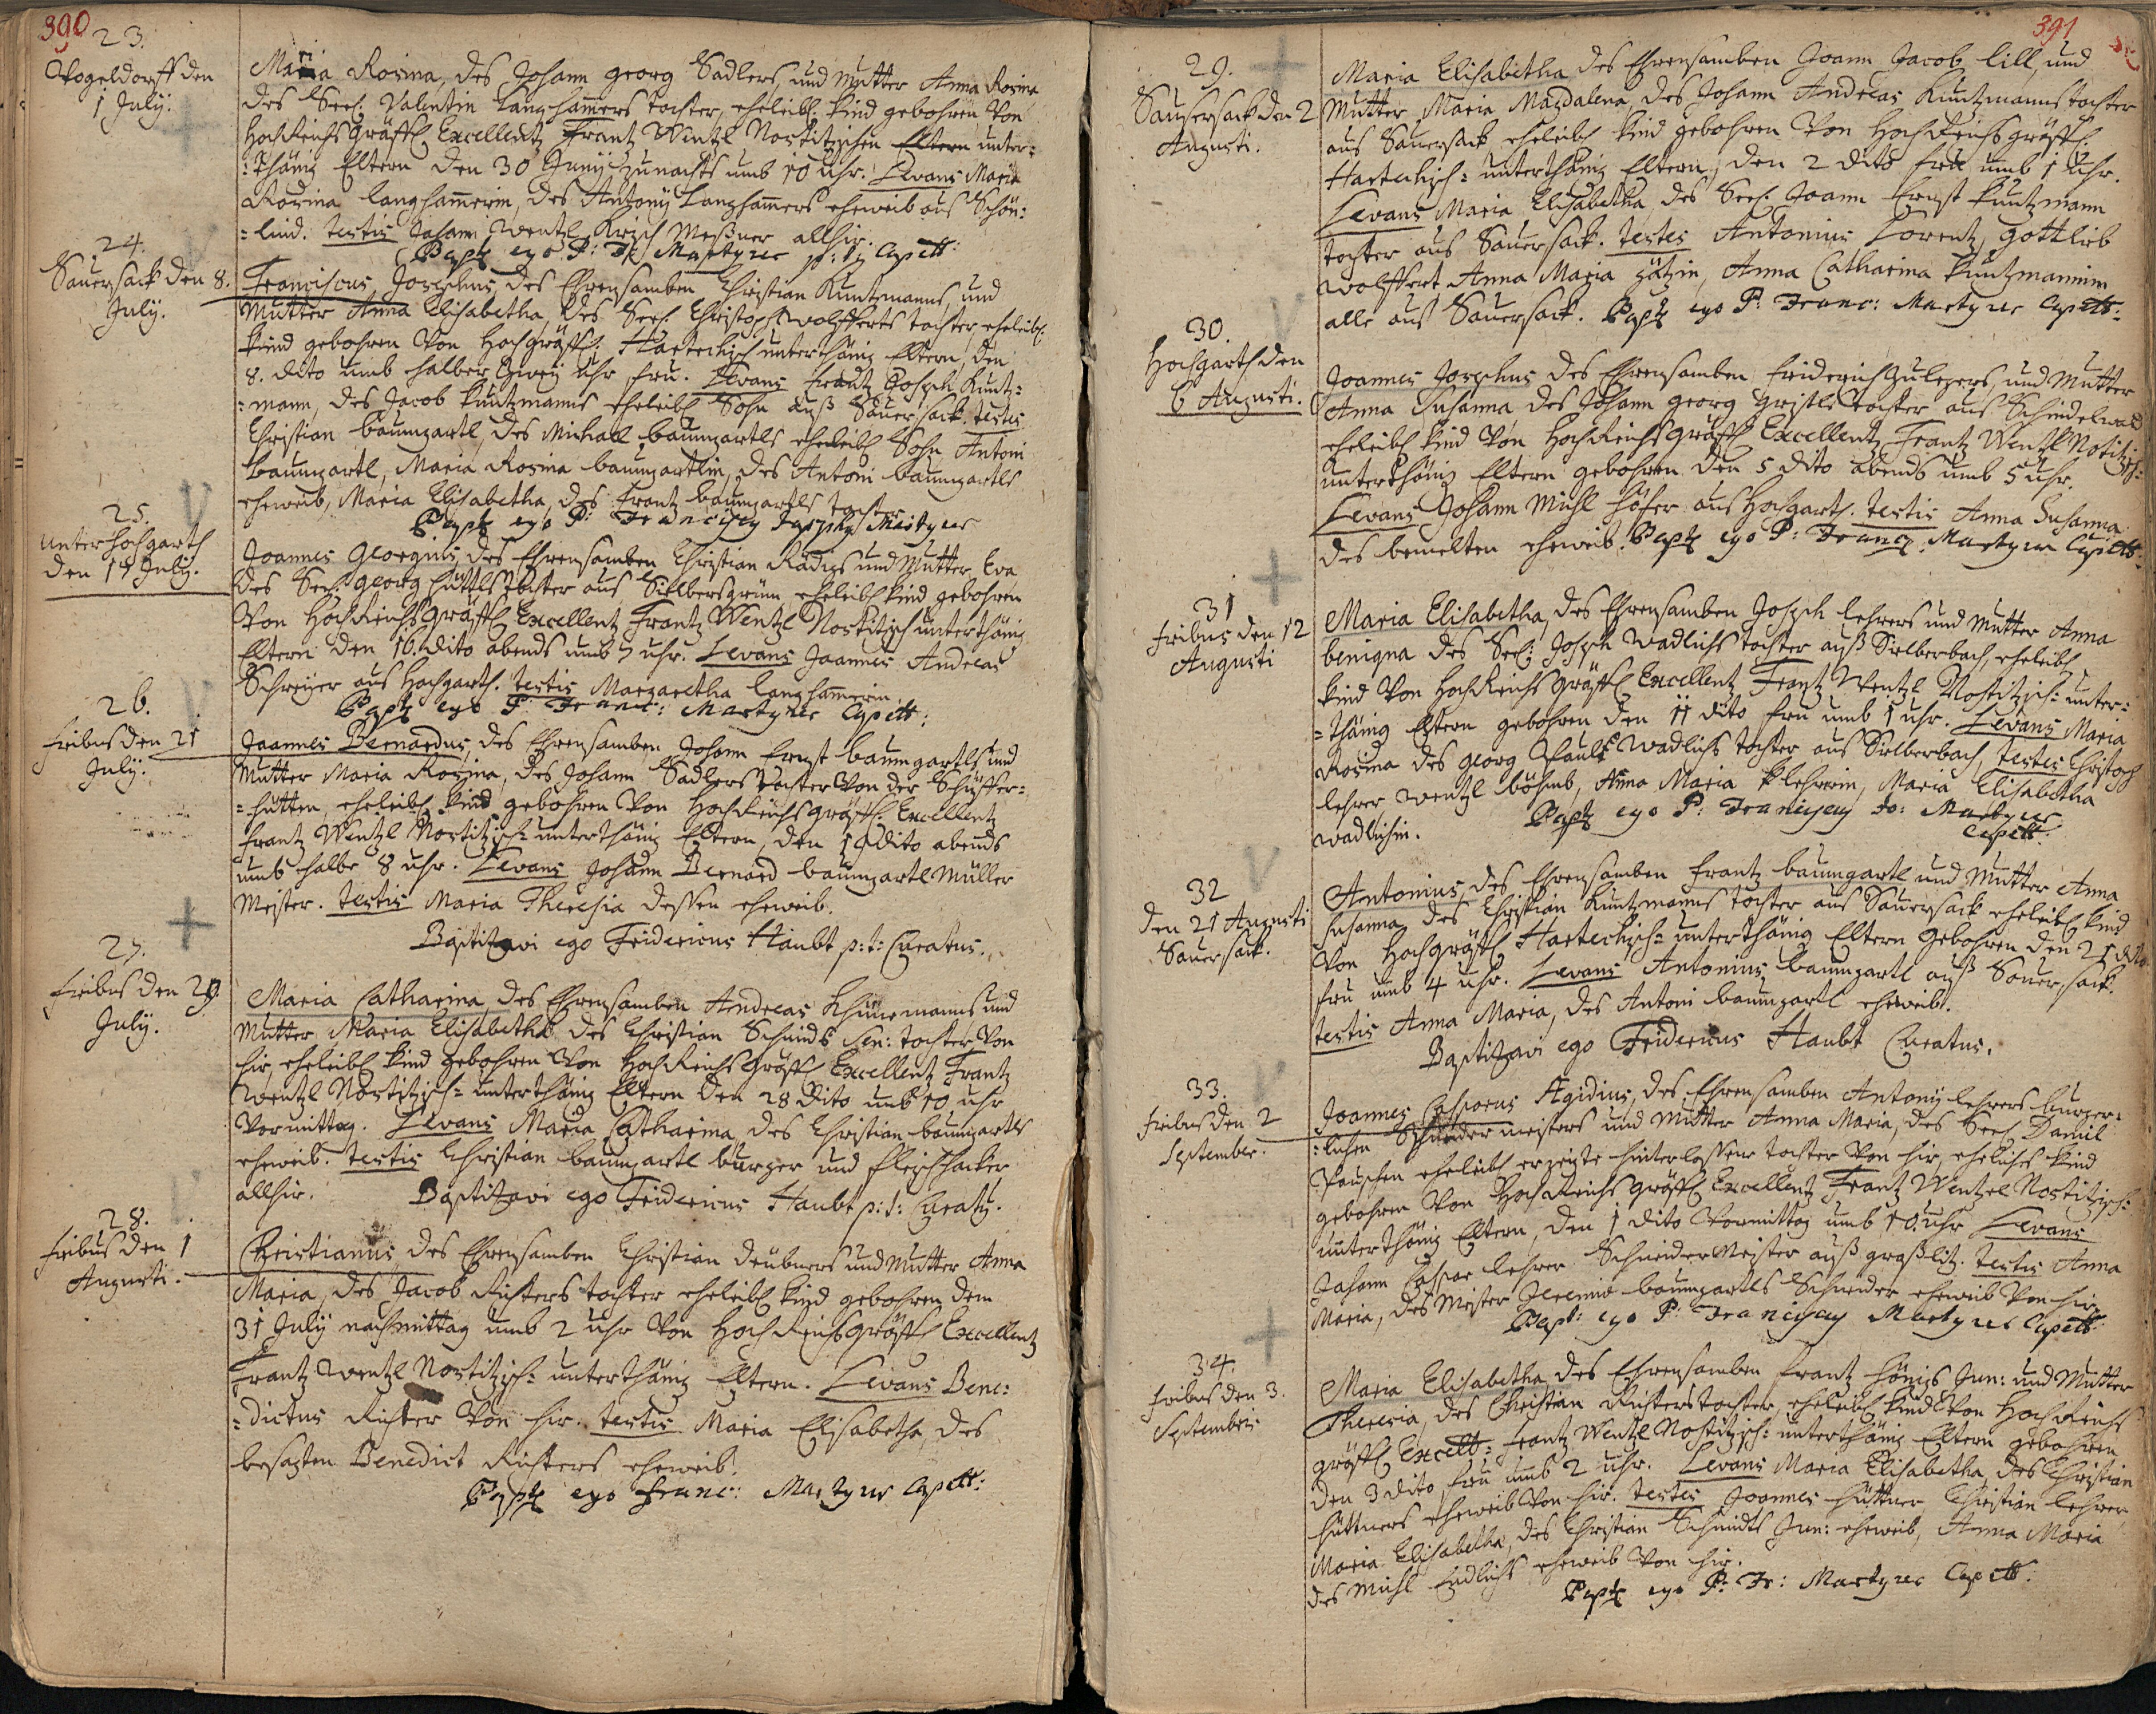 390
23.
Vogeldorff den
1 July.
Maria Rosina, des Johann georg Sadlers, und Mutter Anna Rosina
des Seel: Valentin Langhamers tochter, eheleibl: kind gebohren Von
HochReichsgräffl Excellentz Frantz Wentzl Nostitzischen Eltern unter=
=thänig Eltern den 30 Junij zunachts umb 10 Uhr. Levans Maria
Rosina langhamerin, des Antonij Langhamers eheweib aus Schön=
=lind. testis Johann Wentzl Kirsch Meßner allhir.
Baptz ego P: Fr: Martyrer p: t: Capell:
24.
Sauersack den 8.
July.
Franciscus Josephus, des Ehrensamben Christian Kuntzmanns, und
Mutter Anna Elisabetha, des Seel: Christoph Wolfferts tochter, eheleibl:
kind gebohren Von Hochgräffl: Hartechisch unterthänig Eltern, den
8. dito umb halber Zwey uhr fru. Levans Frantz Joseph Kuntz=
=mann, des Jacob Kuntzmanns eheleibl Sohn auß Sauersack. testes
Christian baumgartl, des Michael baumgartls eheleibl Sohn Antoni
baumgartl, Maria Rosina baumgartlin, des Antoni baumgartls
eheweib, Maria Elisabetha, des Frantz baumgartls tochter.
Baptz ego P: Franciscq Josephq Martyrer
25.
unter hochgarth
den 17 July.
Joannes Georgius, des Ehrensamben Christian Radigs und Mutter Eva
des Seel: georg Hüttls tochter aus Sielbersgrün eheleibl kind gebohren
Von HochReichsgräffl Excellentz Frantz Wentzl Nostitzisch unterthänig
Eltern den 16. dito abends umb 7 uhr. Levans Joannes Andreas
Schreyer aus Hochgarth. testis Margaretha langhamerin.
Baptz ego P: Franc: Martyrer Capell:
26.
fribus den 21
July.
Joannes Bernardus, des Ehrensamben Johann Ernst baumgartls und
Mutter Maria Rosina, des Johann Sadlers tochter Von der Schüffer=
=hutten, eheleibl kind gebohren Von HochReichsgräffl: Excellentz
Frantz Wentzl Nostitzisch= unterthänig Eltern, den 19 dito abends
umb halbe 8 uhr. Levans Johann Bernard baumgartl Müller
Meister. testis Maria Theresia dessen eheweib.
Baptizavi ego Fridericus Haubt p: t: Curatus.
27.
fribus den 29
July.
Maria Catharina, des Ehrensamben Andreas Khünemanns und
Mutter Maria Elisabetha des Christian Schmids Sen: tochter Von
hir eheleibl kind gebohren Von HochReichsgräffl Excellentz Frantz
Wentzl Nostitzisch= unterthänig Eltern den 28 dito umb 10 uhr
Vormittag. Levans Maria Catharina, des Christian baumgartls
eheweib. testis Christian baumgartl burger und fleischhacker
allhir.
Baptizavi ego Fridericus Haubt p: t: Curatq.
28.
fribus den 1
Augusti.
Christianus, des Ehrensamben Christian deubners und Mutter Anna
Maria, des Jacob Richters tochter eheleibl kind gebohren dem
31 July nachmittag umb 2 uhr Von HochReichsgräffl Excellentz
Frantz Wentzl Nostitzisch= unterthänig Eltern. Levans Bene=
=dictus Richter Von hir. testis Maria Elisabetha, des
besagten Benedict Richters eheweib.
Baptz ego Franc: Martyrer Capell:
391
29.
Sauersack den 2
Augusti.
Maria Elisabetha des Ehrensamben Joann Jacob lill, und
Mutter Maria Magdalena, des Johann Andreas Kuntzmanns tochter
aus Sauersack eheleibl kind gebohren Von HochReichsgräffl
Hartechisch= unterthänig Eltern, den 2 dito frue umb 1 Uhr.
Levans Maria Elisabetha, des Seel: Joann Ernst kuntzmann
tochter aus Sauersack. testes Antonius Lorentz, gottlieb
wolffert Anna Maria gätzin, Anna Catharina kuntzmannin
alle aus Sauersack. Baptz ego P: Franc: Martyrer Capell:
30.
Hochgarth den
6 Augusti.
Joannes Josephus des Ehrensamben Friderich Zulegers, und Mutter
Anna Susanna des Johann georg gristls tochter aus Schindelwald
eheleibl kind Von HochReichsgräffl Excellentz Frantz Wentzl Nostitzisch=
unterthänig Eltern gebohren den 5 dito abends umb 5 uhr.
Levans Johann Michl Höfer aus Hochgarth. testis Anna Susanna
des bemelten eheweib. Baptz ego P: Francq Martyrer Capell:
31
fribus den 12
Augusti
Maria Elisabetha, des Ehrensamben Joseph lehrers und Mutter Anna
benigna des Seel: Joseph Wadlichs tochter auß Sielberbach, eheleibl
kind Von HochReichsgräffl Excellentz Frantz Wentzl Nostitzisch= unter=
=thänig Eltern gebohren den 11 dito fru umb 1 uhr. Levans Maria
Rosina des georg Paul Wadlichs tochter aus Sielberbach, testes Christoph
lehrer Wentzl böhmb, Anna Maria lehrerin, Maria Elisabetha
wadlichin.
Baptz ego P: Franciscq Jo: Martyrer
Capell:
32
den 21 Augusti
Sauersack.
Antonius, des Ehrensamben Frantz baumgartl und Mutter Anna
Susanna, des Christian Kuntzmanns tochter aus Sauersack eheleibl kind
Von Hochgräffl Hartechisch= unterthänig Eltern gebohren den 21 dito
fru umb 4 uhr. Levans Antonius baumgartl auß Sauersack.
testis Anna Maria, des Antoni baumgartl eheweib.
Baptizavi ego Fridericus Haubt Curatus.
33.
fribus den 2
September.
Joannes Casparus Ægidius, des Ehrensamben Antonij lehrers burger=
=lichen Schneidermeisters und Mutter Anna Maria, des Seel Daniel
Pauschen eheleibl erzeigte hinterlassene tochter Von hir, eheliches kind
gebohren Von HochReichsgräffl Excellentz Frantz Wentzel Nostitzisch=
unterthänig Eltern, den 1 dito Vormittag umb 10 uhr Levans
Johann Caspar lehrer Schneider Meister auß graßlitz. testis Anna
Maria, des Meister Jeremias baumgartls Schneider eheweib Von hir.
Bapt: ego P: Franciscq Martyrer Capell:
34.
fribus den 3.
Septembris
Maria Elisabetha des Ehrensamben Frantz Hönigs Jun: und Mutter
Theresia, des Christian Richters tochter, eheleibl kind Von HochReichs
gräffl Excell: Frantz Wentzl Nostitzisch: unterthänig Eltern gebohren
den 3 dito fru umb 2 uhr. Levans Maria Elisabetha, des Christian
hüttners eheweib Von hir. testes Joannes hüttner Christian lehrer
Maria Elisabetha, des Christian Schmidts Jun: eheweib, Anna Maria
des Michl Endlichs eheweib Von hir.
Baptz ego P: Fr: Martyrer Capell: